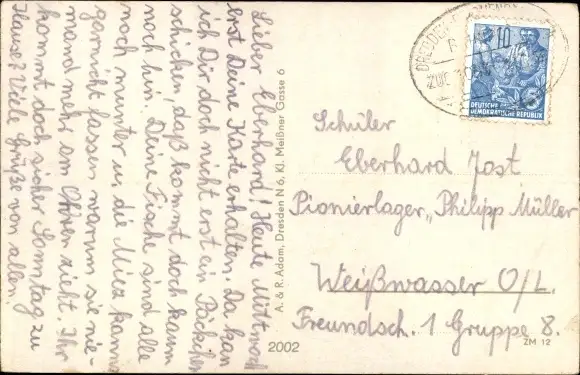 Lieber Eberhard! Heute Mittwoch
erst Deine Karte erhalten. Da kan
ich Dir doch nicht erst ein Päckchen
schicken, daß kommt doch kaum
noch hin. Deine Fische sind alle
noch munter u. die Miez kann
garnicht fassen, warum sie nie-
mand mehr am Ohren zieht. Ihr
kommt doch sicher Sonntag zu
Hause? Viele Grüße von allen.
A. & R. Adam, Dresden N 6, Kl. Meißner Gasse 6
2002
DRESDEN
ZUG
10
DEUTSCHE
DEMOKRATISCHE REPUBLIK
Schüler
Eberhard Jost
Pionierlager „Philipp Müller
Weißwasser O/L.
Freundsch. 1 Gruppe 8.
ZM 12